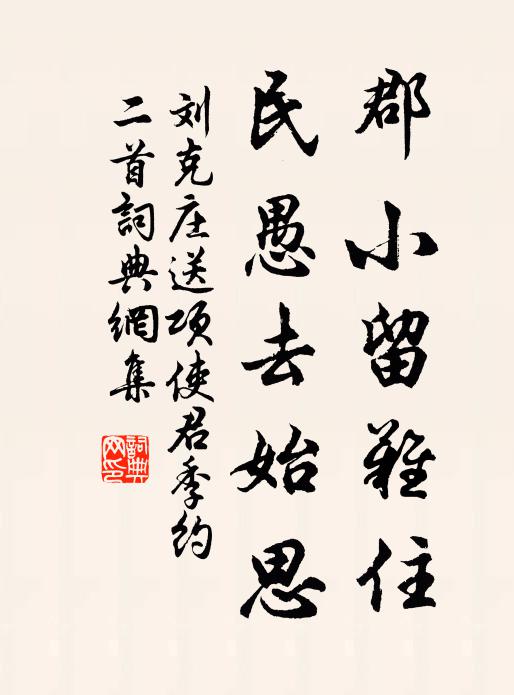 郡小留難住
民愚去始思
刘克庄送项使君季约
二首詞典網集
詞典
网印